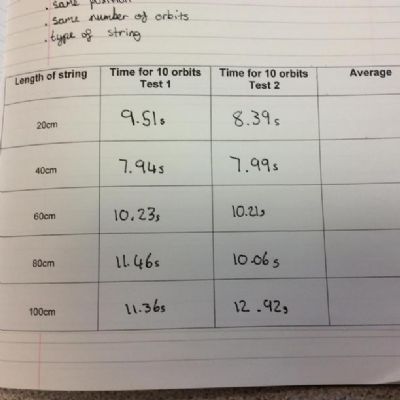 . same position
. same number of orbits
. type of string
Length of string Time for 10 orbits Test 1 Time for 10 orbits Test 2 Average
20cm 9.51s 8.39s
40cm 7.94s 7.99s
60cm 10.23s 10.21s
80cm 11.46s 10.06s
100cm 11.36s 12.92s